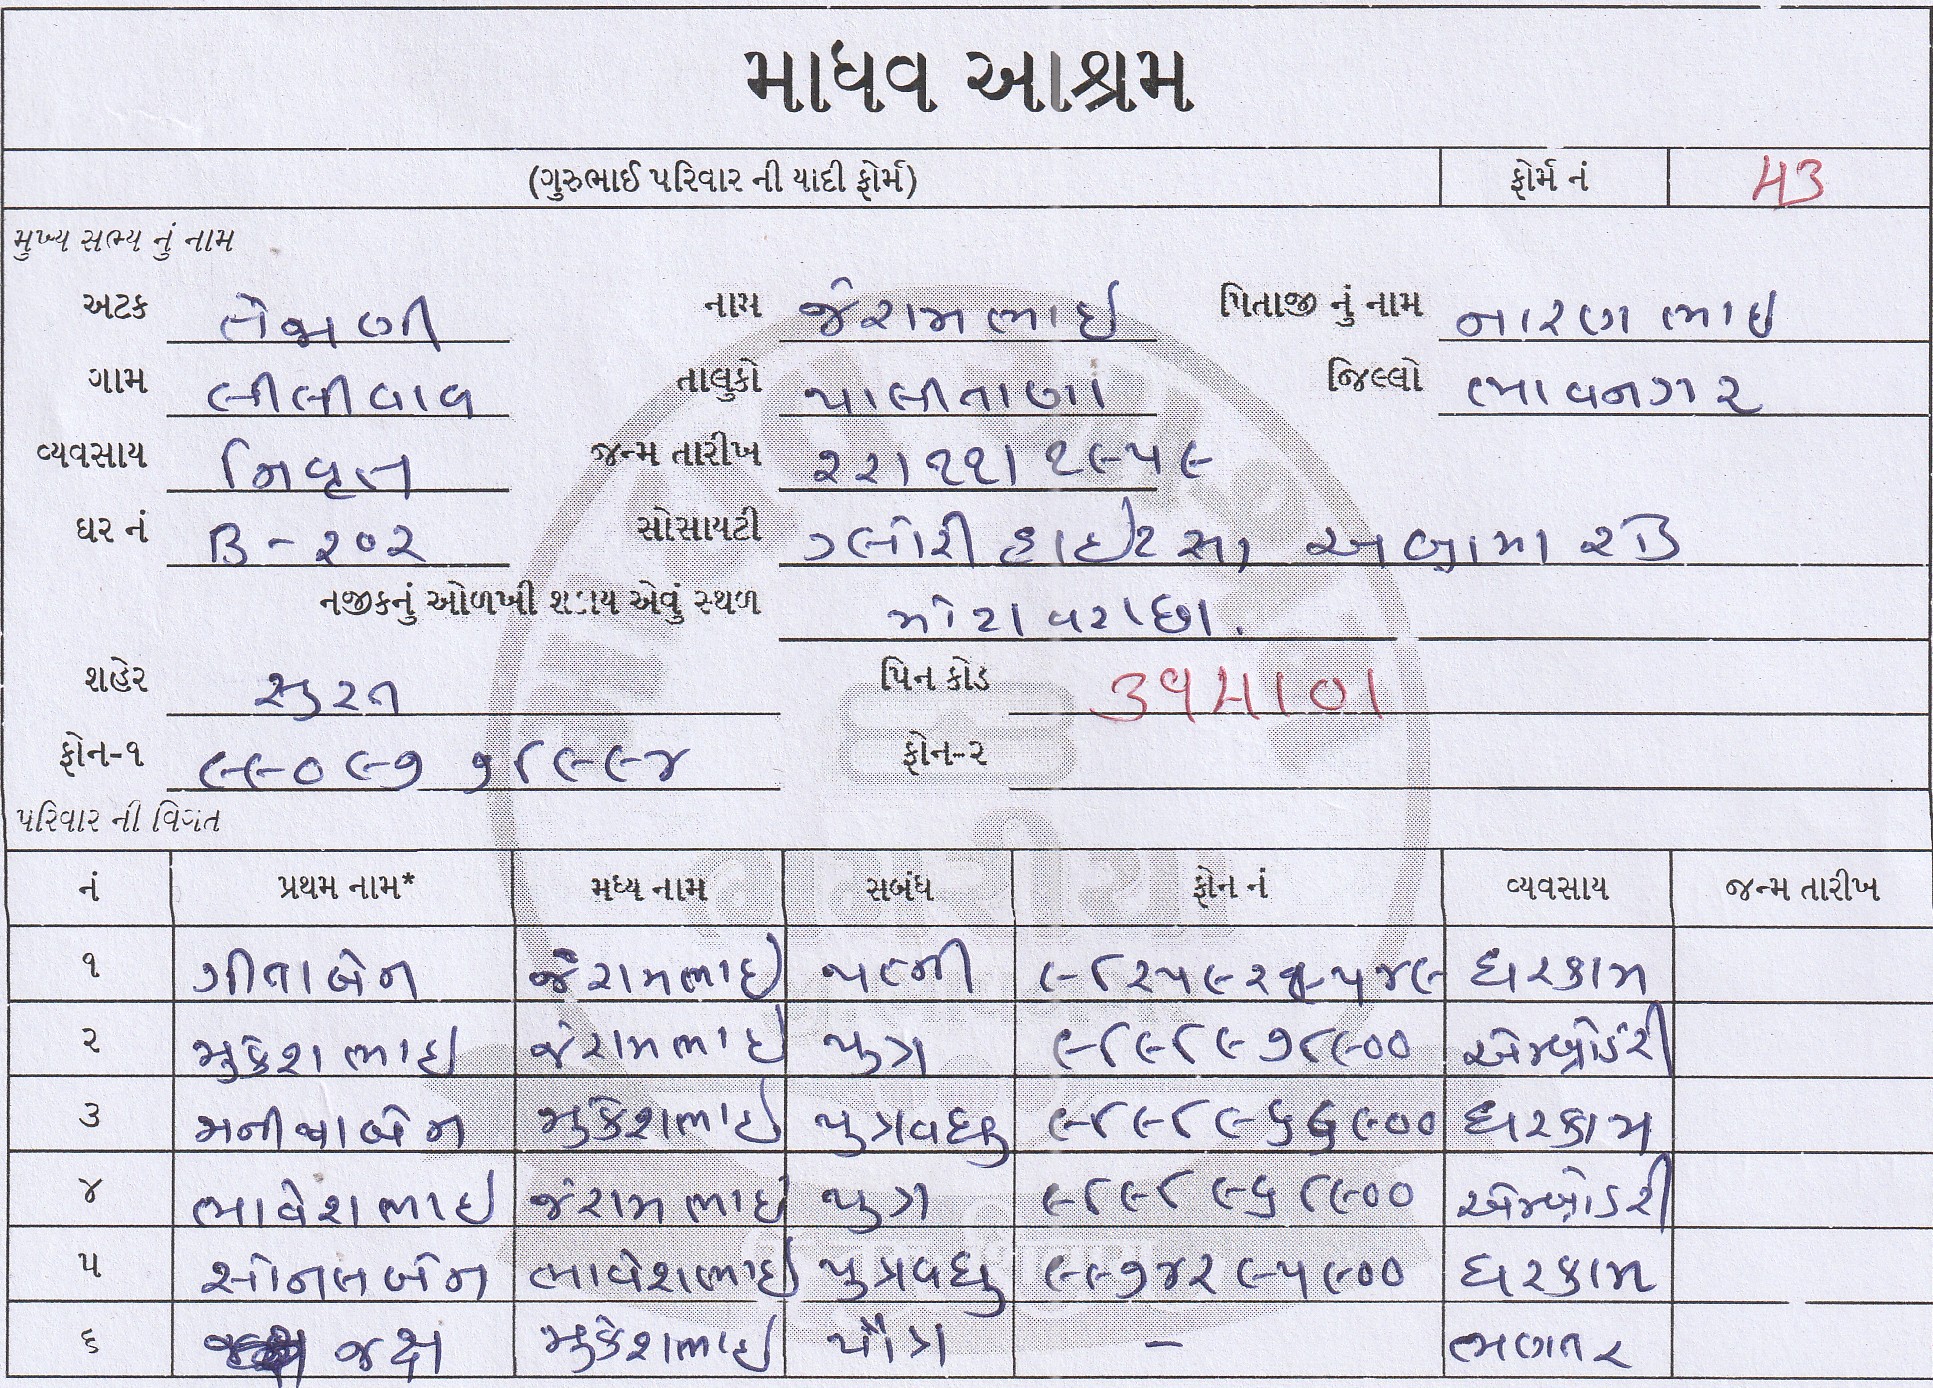 માધવ આશ્રમ
(ગુરુભાઈ પરિવાર ની યાદી ફોર્મ) ફોર્મ નં ૫૩
મુખ્ય સભ્ય નું નામ
અટક તેજાણી નામ જેરામભાઈ પિતાજી નું નામ નારણભાઇ
ગામ લીલીવાવ તાલુકો પાલીતાણા જિલ્લો ભાવનગર
વ્યવસાય નિવૃત જન્મ તારીખ ૨૨/૧૧/૧૯૫૯
ઘર નં B-૨૦૨ સોસાયટી ગ્લોરી હાઇટસ, અબ્રામા રોડ
નજીકનું ઓળખી શકાય એવું સ્થળ મોટા વરાછા.
શહેર સુરત પિન કોડ ૩૯૫૧૦૧
ફોન-૧ ૯૯૦૯૭ ૭૮૯૯૪ ફોન-૨
પરિવાર ની વિગત
નં પ્રથમ નામ* મધ્ય નામ સબંધ ફોન નં વ્યવસાય જન્મ તારીખ
૧ ગીતાબેન જેરામભાઇ પત્ની ઘરકામ
૨ મુકેશભાઇ જેરામભાઇ પુત્ર ૯૮૯૮૯૭૮૯૦૦ એમ્બ્રોડરી
૩ મનીષાબેન મુકેશભાઇ પુત્રવધુ ૯૮૯૮૯૬૬૯૦૦ ઘરકામ
૪ ભાવેશભાઇ જેરામભાઇ પુત્ર ૯૮૯૮૯૬૮૯૦૦ એમ્બ્રોડરી
૫ સોનલબેન ભાવેશભાઇ પુત્રવધુ ૯૯૭૪૨૯૫૯૦૦ ઘરકામ
૬ જક્ષ મુકેશભાઇ પૌત્ર - ભણતર